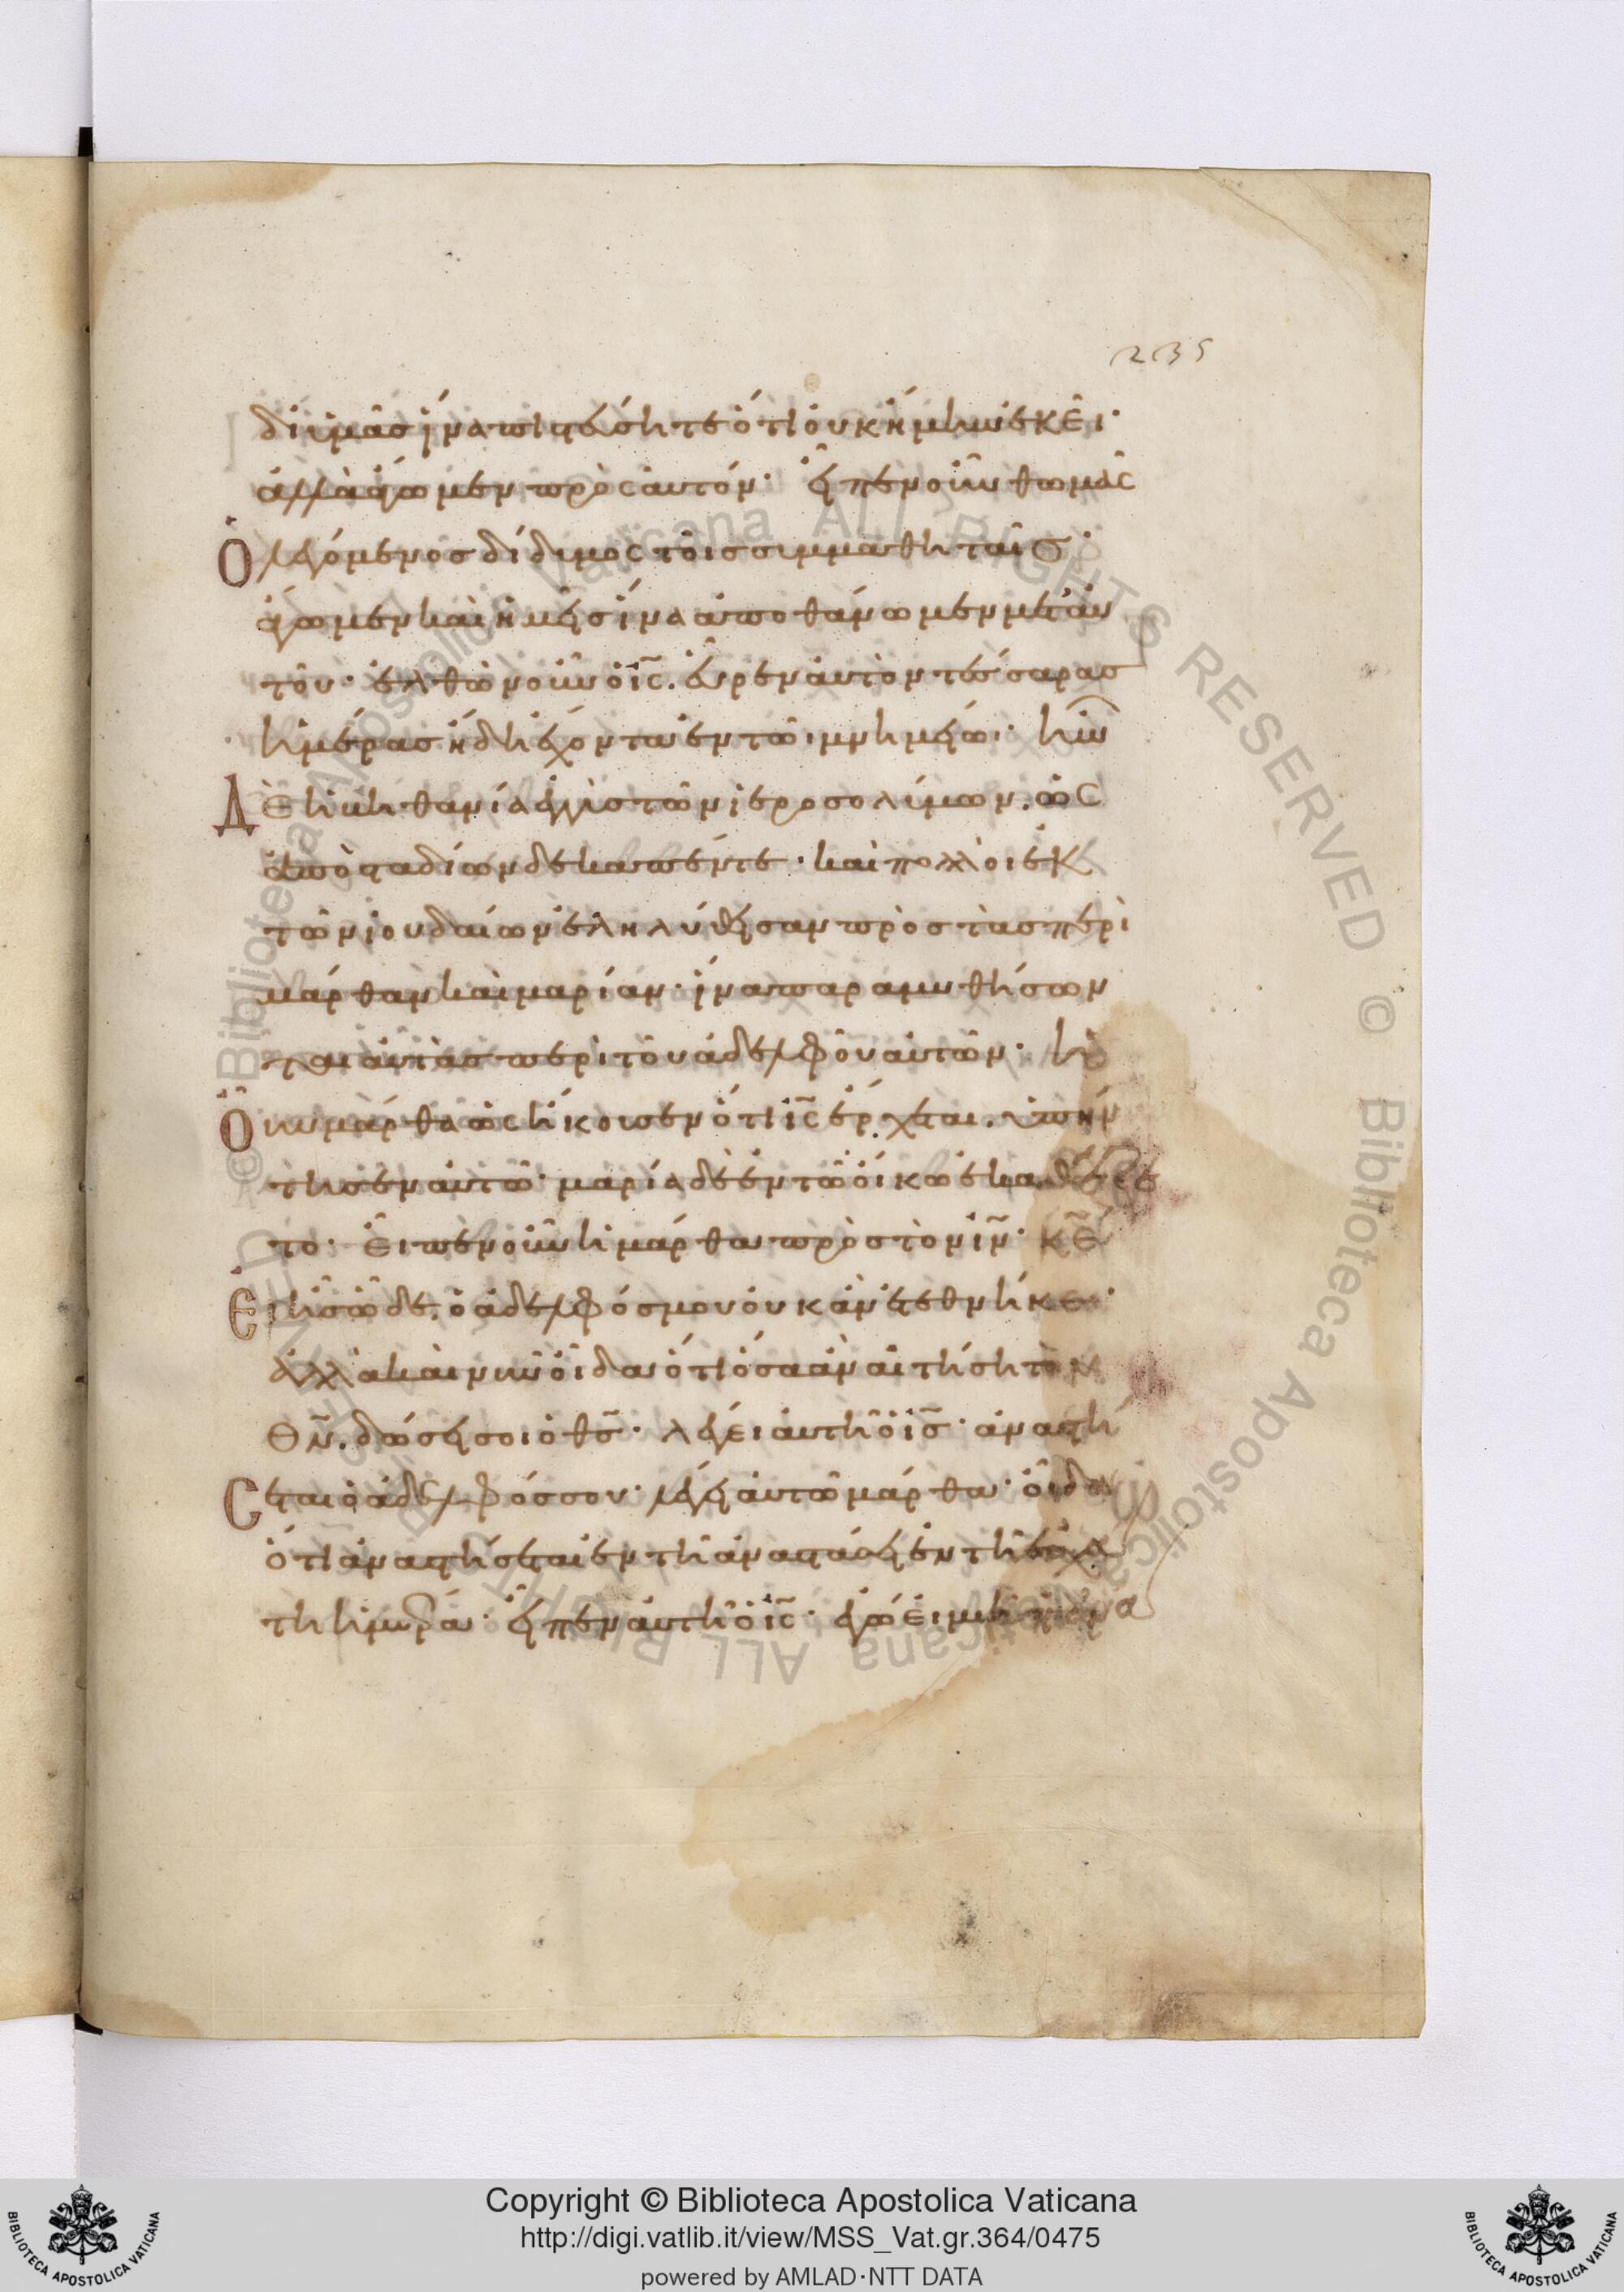 235
δι' ὑμᾶσ ἵνα πιστεύσητε ὅτι οὐκ ἤμην ἐκεῖ·
ἀλλὰ ἄγωμεν πρὸς αὐτόν· εἶπεν οὖν θωμᾶς
Ὁ λεγόμενοσ δίδυμος τοῖσ συμμαθηταῖσ·
ἄγωμεν καὶ ἡμεῖσ ἵνα ἀποθάνωμεν μετ' αὐ
τοῦ· ἐλθὼν οὖν ὁ ἰς̃. εὗρεν αὐτὸν τέσσαρασ
ἡμέρασ ἤδη ἔχοντα ἐν τῶι μνημείωι· ἦν
Δὲ ἡ βηθανία ἐγγὺσ τῶν ἱεροσολύμων. ὡς
ἀπὸ σταδίων δεκαπέντε· καὶ πολλοὶ ἐκ
τῶν ἰουδαίων ἐληλύθεισαν πρὸσ τὰσ περὶ
μάρθαν καὶ μαρίαν· ἵνα παραμυθήσων
ται αὐτὰσ περὶ τοῦ ἀδελφοῦ αὐτῶν· ἡ
Οὖν μάρθα ὡς ἤκουσεν ὅτι ἰς̃ ἔρχεται. ὑπήν
τησεν αὐτῶ· μαρία δὲ ἐν τῶ οἴκω ἐκαθέζε
το· εἶπεν οὖν ἡ μάρθα πρὸσ τὸν ἰν̃· κε̃
Εἰ ἦσ ὧδε. ὁ ἀδελφόσ μου οὐκ ἂν ἐτεθνήκει·
ἀλλὰ καὶ νῦν οἶδα ὅτι ὅσα ἂν αἰτήση τὸν
θν̃. δώσει σοι ὁ θσ̃· λέγει αὐτῆ ὁ ἰσ̃· ἀναστή
Σεται ὁ ἀδελφόσ σου· λέγει αὐτῶ μάρθα· οἶδα
ὅτι ἀναστήσεται ἐν τῆ ἀναστάσει ἐν τῆ ἐσχά
τη ἡμέρα· εἶπεν αὐτῆ ὁ ἰς̃· ἐγώ εἰμι ἡ ἀνά
Copyright © Biblioteca Apostolica Vaticana
http://digi.vatlib.it/view/MSS_Vat.gr.364/0475
powered by AMLAD·NTT DATA
BIBLIOTECA APOSTOLICA VATICANA
BIBLIOTECA APOSTOLICA VATICANA
© Biblioteca Apostolica Vaticana ALL RIGHTS RESERVED
© Biblioteca Apostolica Vaticana ALL RIGHTS RESERVED